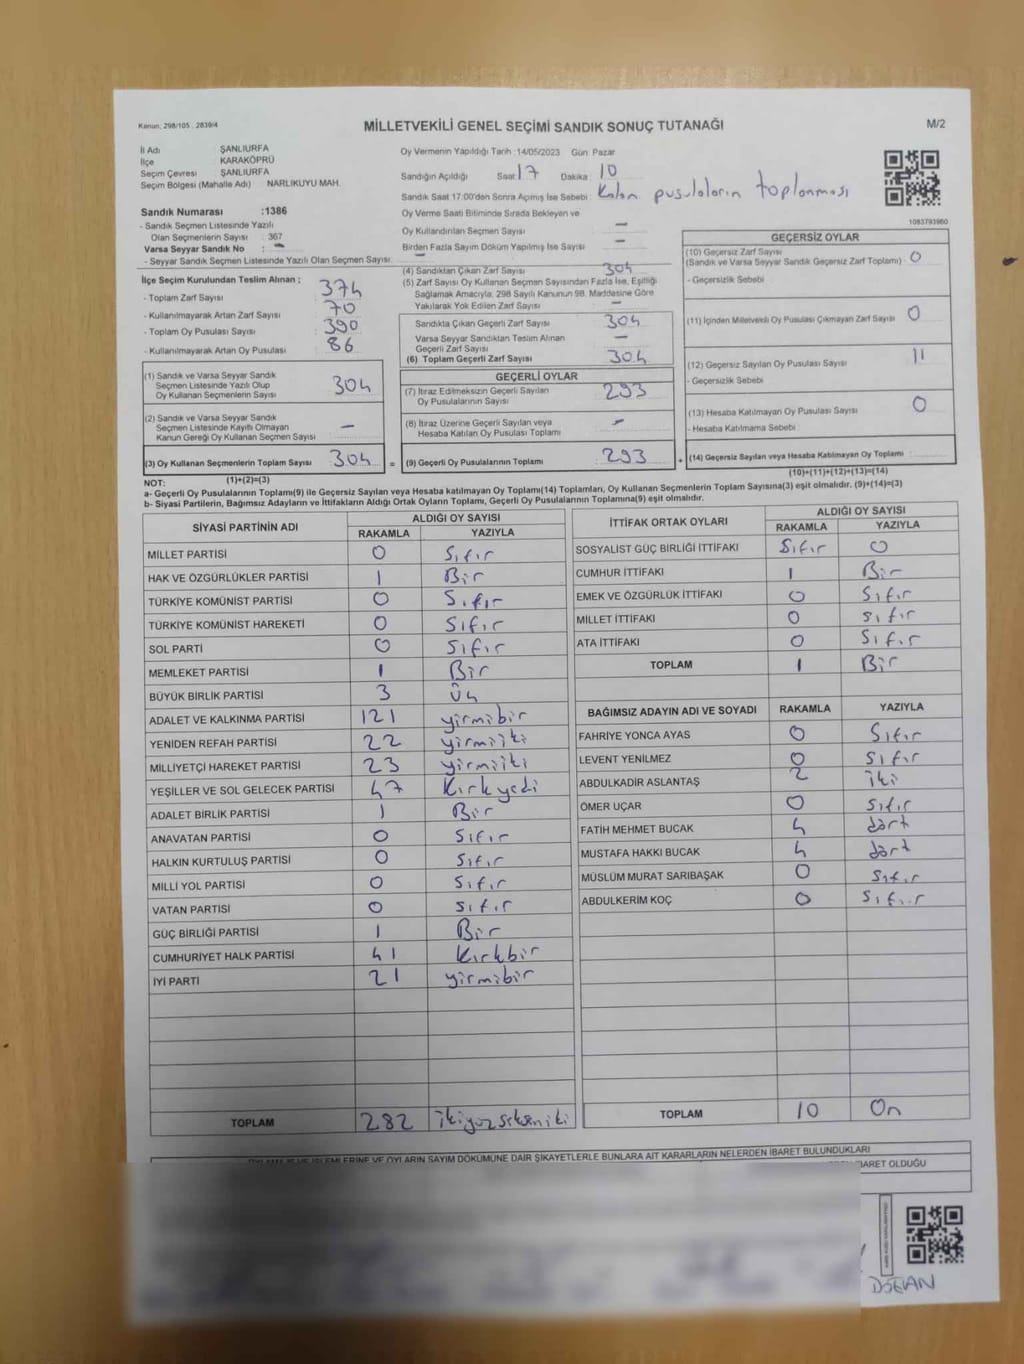 Kanun: 298/105 , 2839/4
MİLLETVEKİLİ GENEL SEÇİMİ SANDIK SONUÇ TUTANAĞI
M/2
İl Adı ŞANLIURFA
İlçe KARAKÖPRÜ
Seçim Çevresi ŞANLIURFA
Seçim Bölgesi (Mahalle Adı) NARLIKUYU MAH.
Sandık Numarası :1386
- Sandık Seçmen Listesinde Yazılı
Olan Seçmenlerin Sayısı : 367
Varsa Seyyar Sandık No : -
- Seyyar Sandık Seçmen Listesinde Yazılı Olan Seçmen Sayısı: -
Oy Vermenin Yapıldığı Tarih :14/05/2023 Gün: Pazar
Sandığın Açıldığı Saat: 17 Dakika: 10
Sandık Saat 17:00'den Sonra Açımış İse Sebebi: Kalan pusulaların toplanması
Oy Verme Saati Bitiminde Sırada Bekleyen ve
Oy Kullandırılan Seçmen Sayısı -
Birden Fazla Sayım Döküm Yapılmış İse Sayısı -
1083793960
İlçe Seçim Kurulundan Teslim Alınan ;
- Toplam Zarf Sayısı 374
- Kullanılmayarak Artan Zarf Sayısı 70
- Toplam Oy Pusulası Sayısı 390
- Kullanılmayarak Artan Oy Pusulası 86
(1) Sandık ve Varsa Seyyar Sandık
Seçmen Listesinde Yazılı Olup
Oy Kullanan Seçmenlerin Sayısı 304
(2) Sandık ve Varsa Seyyar Sandık
Seçmen Listesinde Kayıtlı Olmayan
Kanun Gereği Oy Kullanan Seçmen Sayısı -
(3) Oy Kullanan Seçmenlerin Toplam Sayısı 304 =
(1)+(2)=(3)
(4) Sandıktan Çıkan Zarf Sayısı 304
(5) Zarf Sayısı Oy Kullanan Seçmen Sayısından Fazla İse, Eşitliği
Sağlamak Amacıyla, 298 Sayılı Kanunun 98. Maddesine Göre
Yakılarak Yok Edilen Zarf Sayısı -
Sandıkta Çıkan Geçerli Zarf Sayısı 304
Varsa Seyyar Sandıktan Teslim Alınan
Geçerli Zarf Sayısı -
(6) Toplam Geçerli Zarf Sayısı 304
GEÇERLİ OYLAR
(7) İtiraz Edilmeksizin Geçerli Sayılan
Oy Pusulalarının Sayısı 293
(8) İtiraz Üzerine Geçerli Sayılan veya
Hesaba Katılan Oy Pusulası Toplamı -
(9) Geçerli Oy Pusulalarının Toplamı 293 +
GEÇERSİZ OYLAR
(10) Geçersiz Zarf Sayısı
(Sandık ve Varsa Seyyar Sandık Geçersiz Zarf Toplamı) 0
- Geçersizlik Sebebi
(11) İçinden Milletvekili Oy Pusulası Çıkmayan Zarf Sayısı 0
(12) Geçersiz Sayılan Oy Pusulası Sayısı 11
- Geçersizlik Sebebi
(13) Hesaba Katılmayan Oy Pusulası Sayısı 0
- Hesaba Katılmama Sebebi
(14) Geçersiz Sayılan veya Hesaba Katılmayan Oy Toplamı
(10)+(11)+(12)+(13)=(14)
NOT:
a- Geçerli Oy Pusulalarının Toplamı(9) ile Geçersiz Sayılan veya Hesaba katılmayan Oy Toplamı(14) Toplamları, Oy Kullanan Seçmenlerin Toplam Sayısına(3) eşit olmalıdır. (9)+(14)=(3)
b- Siyasi Partilerin, Bağımsız Adayların ve İttifakların Aldığı Ortak Oyların Toplamı, Geçerli Oy Pusulalarının Toplamına(9) eşit olmalıdır.
SİYASİ PARTİNİN ADI ALDIĞI OY SAYISI
RAKAMLA YAZIYLA
MİLLET PARTİSİ 0 Sıfır
HAK VE ÖZGÜRLÜKLER PARTİSİ 1 Bir
TÜRKİYE KOMÜNİST PARTİSİ 0 Sıfır
TÜRKİYE KOMÜNİST HAREKETİ 0 Sıfır
SOL PARTİ 0 Sıfır
MEMLEKET PARTİSİ 1 Bir
BÜYÜK BİRLİK PARTİSİ 3 Üç
ADALET VE KALKINMA PARTİSİ 121 yirmibir
YENİDEN REFAH PARTİSİ 22 yirmiiki
MİLLİYETÇİ HAREKET PARTİSİ 23 yirmiiki
YEŞİLLER VE SOL GELECEK PARTİSİ 47 Kırkyedi
ADALET BİRLİK PARTİSİ 1 Bir
ANAVATAN PARTİSİ 0 Sıfır
HALKIN KURTULUŞ PARTİSİ 0 Sıfır
MİLLİ YOL PARTİSİ 0 Sıfır
VATAN PARTİSİ 0 Sıfır
GÜÇ BİRLİĞİ PARTİSİ 1 Bir
CUMHURİYET HALK PARTİSİ 41 Kırkbir
İYİ PARTİ 21 yirmibir
TOPLAM 282 ikiyüzsekseniki
İTTİFAK ORTAK OYLARI ALDIĞI OY SAYISI
RAKAMLA YAZIYLA
SOSYALİST GÜÇ BİRLİĞİ İTTİFAKI Sıfır 0
CUMHUR İTTİFAKI 1 Bir
EMEK VE ÖZGÜRLÜK İTTİFAKI 0 Sıfır
MİLLET İTTİFAKI 0 Sıfır
ATA İTTİFAKI 0 Sıfır
TOPLAM 1 Bir
BAĞIMSIZ ADAYIN ADI VE SOYADI RAKAMLA YAZIYLA
FAHRİYE YONCA AYAS 0 Sıfır
LEVENT YENİLMEZ 0 Sıfır
ABDULKADİR ASLANTAŞ 2 iki
ÖMER UÇAR 0 Sıfır
FATİH MEHMET BUCAK 4 dört
MUSTAFA HAKKI BUCAK 4 dört
MÜSLÜM MURAT SARIBAŞAK 0 Sıfır
ABDULKERİM KOÇ 0 Sıfır
TOPLAM 10 On
OYLAMA İŞ VE İŞLEMLERİNE VE OYLARIN SAYIM DÖKÜMÜNE DAİR ŞİKAYETLERLE BUNLARA AİT KARARLARIN NELERDEN İBARET BULUNDUKLARI
İBARET OLDUĞU
DOĞAN